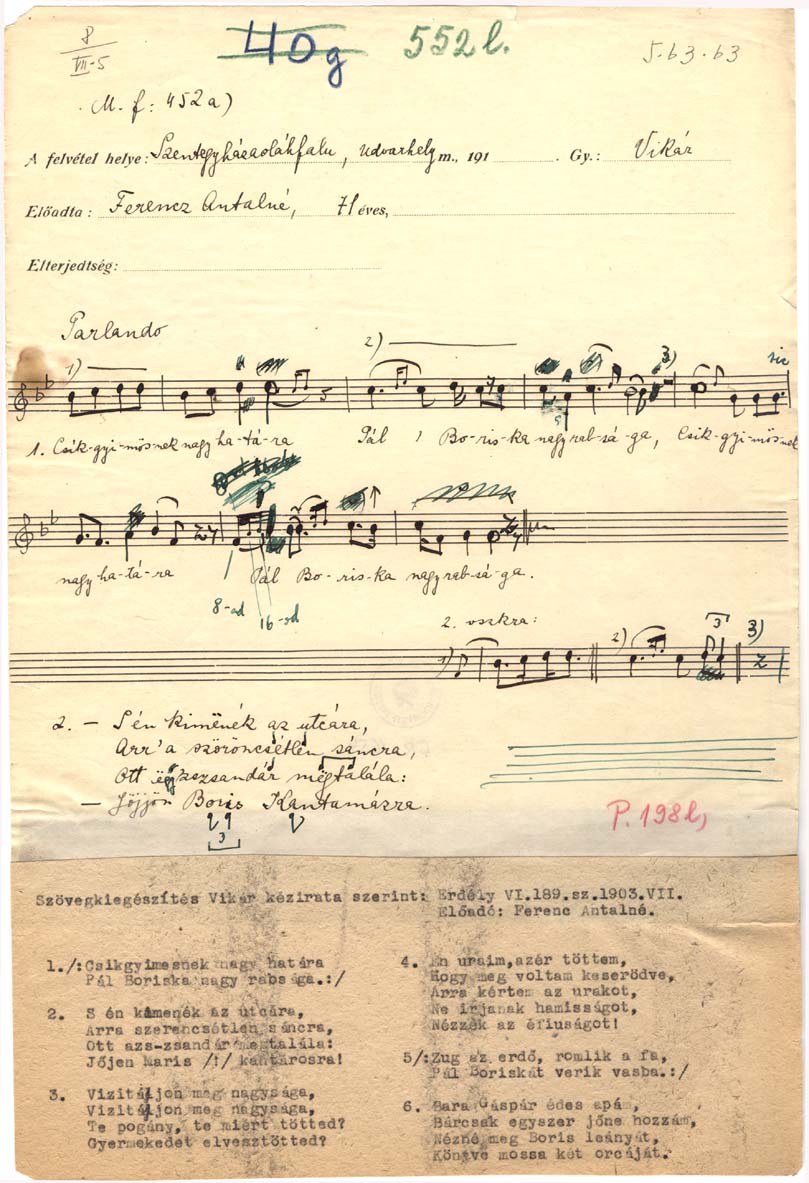 8
VII-5
40g
552l.
5.63.63
M. f: 452a)
A felvétel helye: Szentegyházasoláhfalu, Udvarhely m., 191 . Gy.: Vikár
Előadta: Ferencz Antalné, 71 éves,
Elterjedtség:
Parlando
1)
2)
3)
sic
1. Csik-gyi-mös-nek nagy ha-tá-ra Pál Bo-ris-ka nagy rab-sá-ga, Csik-gyi-mös-nek
nagy ha-tá-ra Pál Bo-ris-ka nagy rab-sá-ga.
8-ad
16-od
2. vsszkra:
1)
2)
3
3)
2. – S én kimënék az utcára,
Arr'a szöröncsétlen sáncra,
Ott ëgy zsandár mëgtalála:
– Jöjjön Boris Kantamázra.
3
P. 198l,
Szövegkiegészítés Vikár kézirata szerint: Erdély VI.189.sz.1903.VII.
Előadó: Ferenc Antalné.
1./:Csikgyimesnek nagy határa
Pál Boriska nagy rabsága.:/
2. S én kimenék az utcára,
Arra szerencsétlen sáncra,
Ott azs-zsandár megtalála:
Jőjen Maris /!/ kantárosra!
3. Vizitáljon meg nagysága,
Vizitáljon meg nagysága,
Te pogány, te miért tötted?
Gyermekedet elvesztötted?
4. Én uraim,azér töttem,
Hogy meg voltam keserödve,
Arra kértem az urakot,
Ne irjanak hamisságot,
Nézzék az éfiuságot!
5/:Zug az erdő, romlik a fa,
Pál Boriskát verik vasba.:/
6. Sara Gáspár édes apám,
Bárcsak egyszer jőne hozzám,
Nézné meg Boris leányát,
Könyve mossa két orcáját.